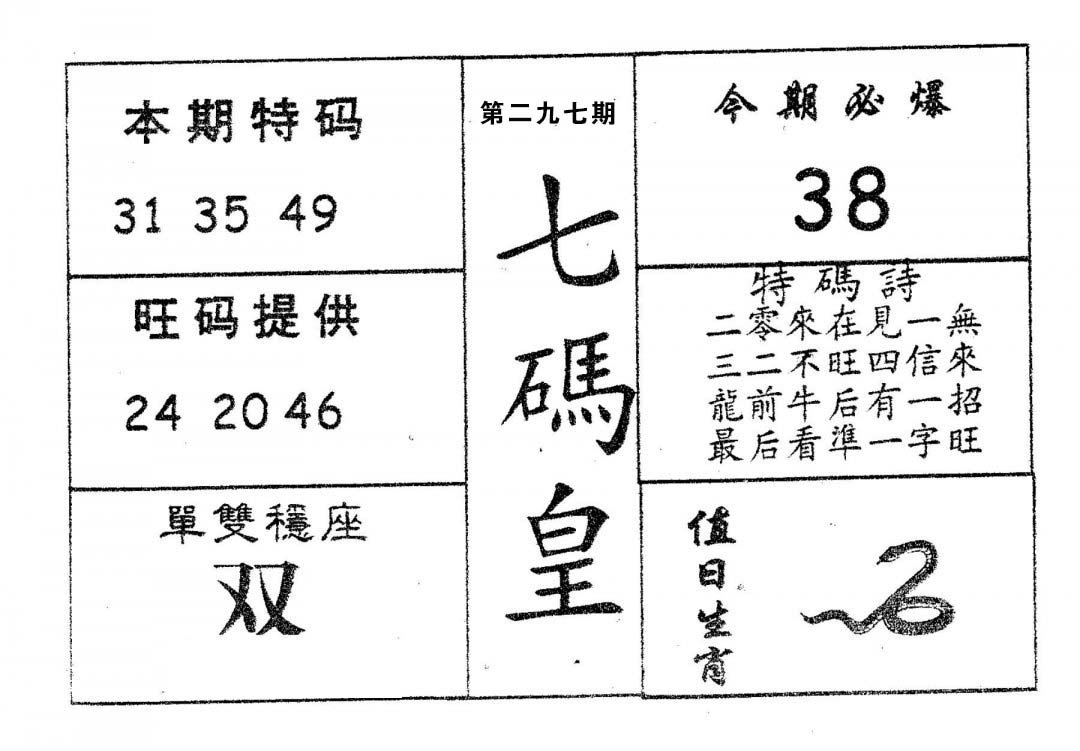 本期特码
31 35 49
旺码提供
24 20 46
單雙穩座
双
第二九七期
七碼皇
今期必爆
38
特碼詩
二零來在見一無
三二不旺四信來
龍前牛后有一招
最后看準一字旺
值日生肖